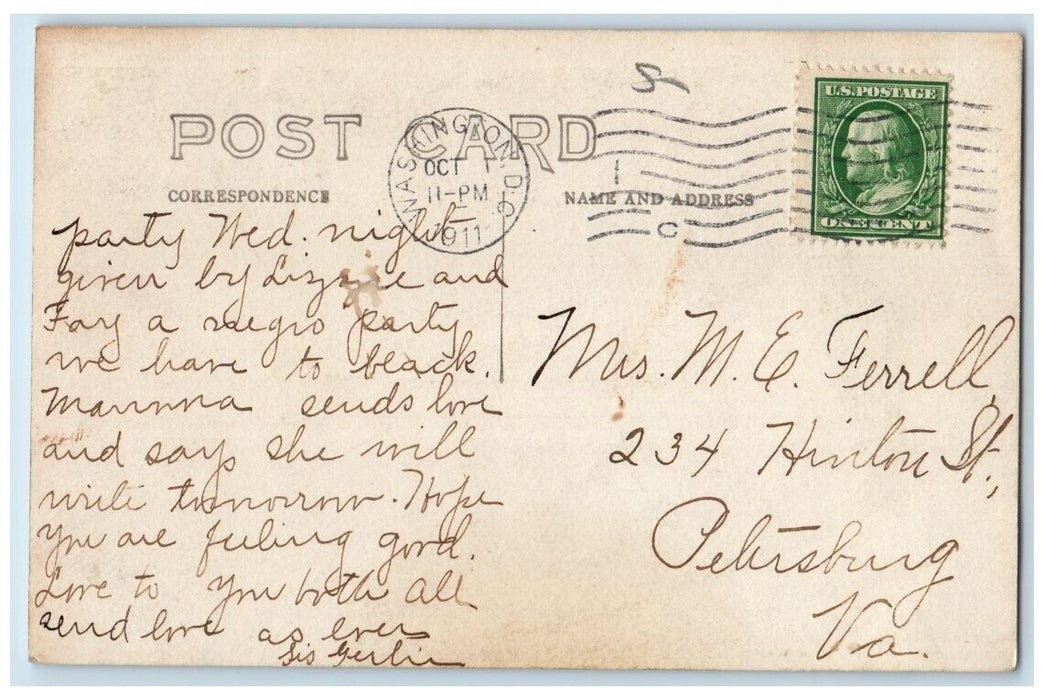 S
POST CARD
WASHINGTON, D.C.
OCT 1
11-PM
1911
1
C
U.S. POSTAGE
ONE CENT
CORRESPONDENCE
NAME AND ADDRESS
party Wed. night
given by Lizzie and
Fay a negro party
we have to black.
Mamma sends love
and says she will
write tomorrow. Hope
you are feeling good.
Love to you both all
send love as ever
Sis
Mrs. M. E. Ferrell,
234 Hinton St.,
Petersburg
Va.